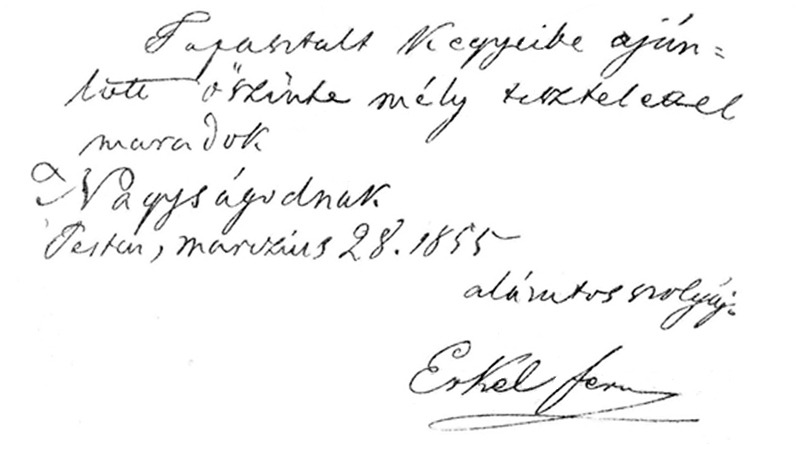 Tapasztalt Kegyeibe aján=
lott őszinte mély tisztelettel
maradok
Nagyságodnak
Pesten, marczius 28. 1855
alázatos szolgája
Erkel feren